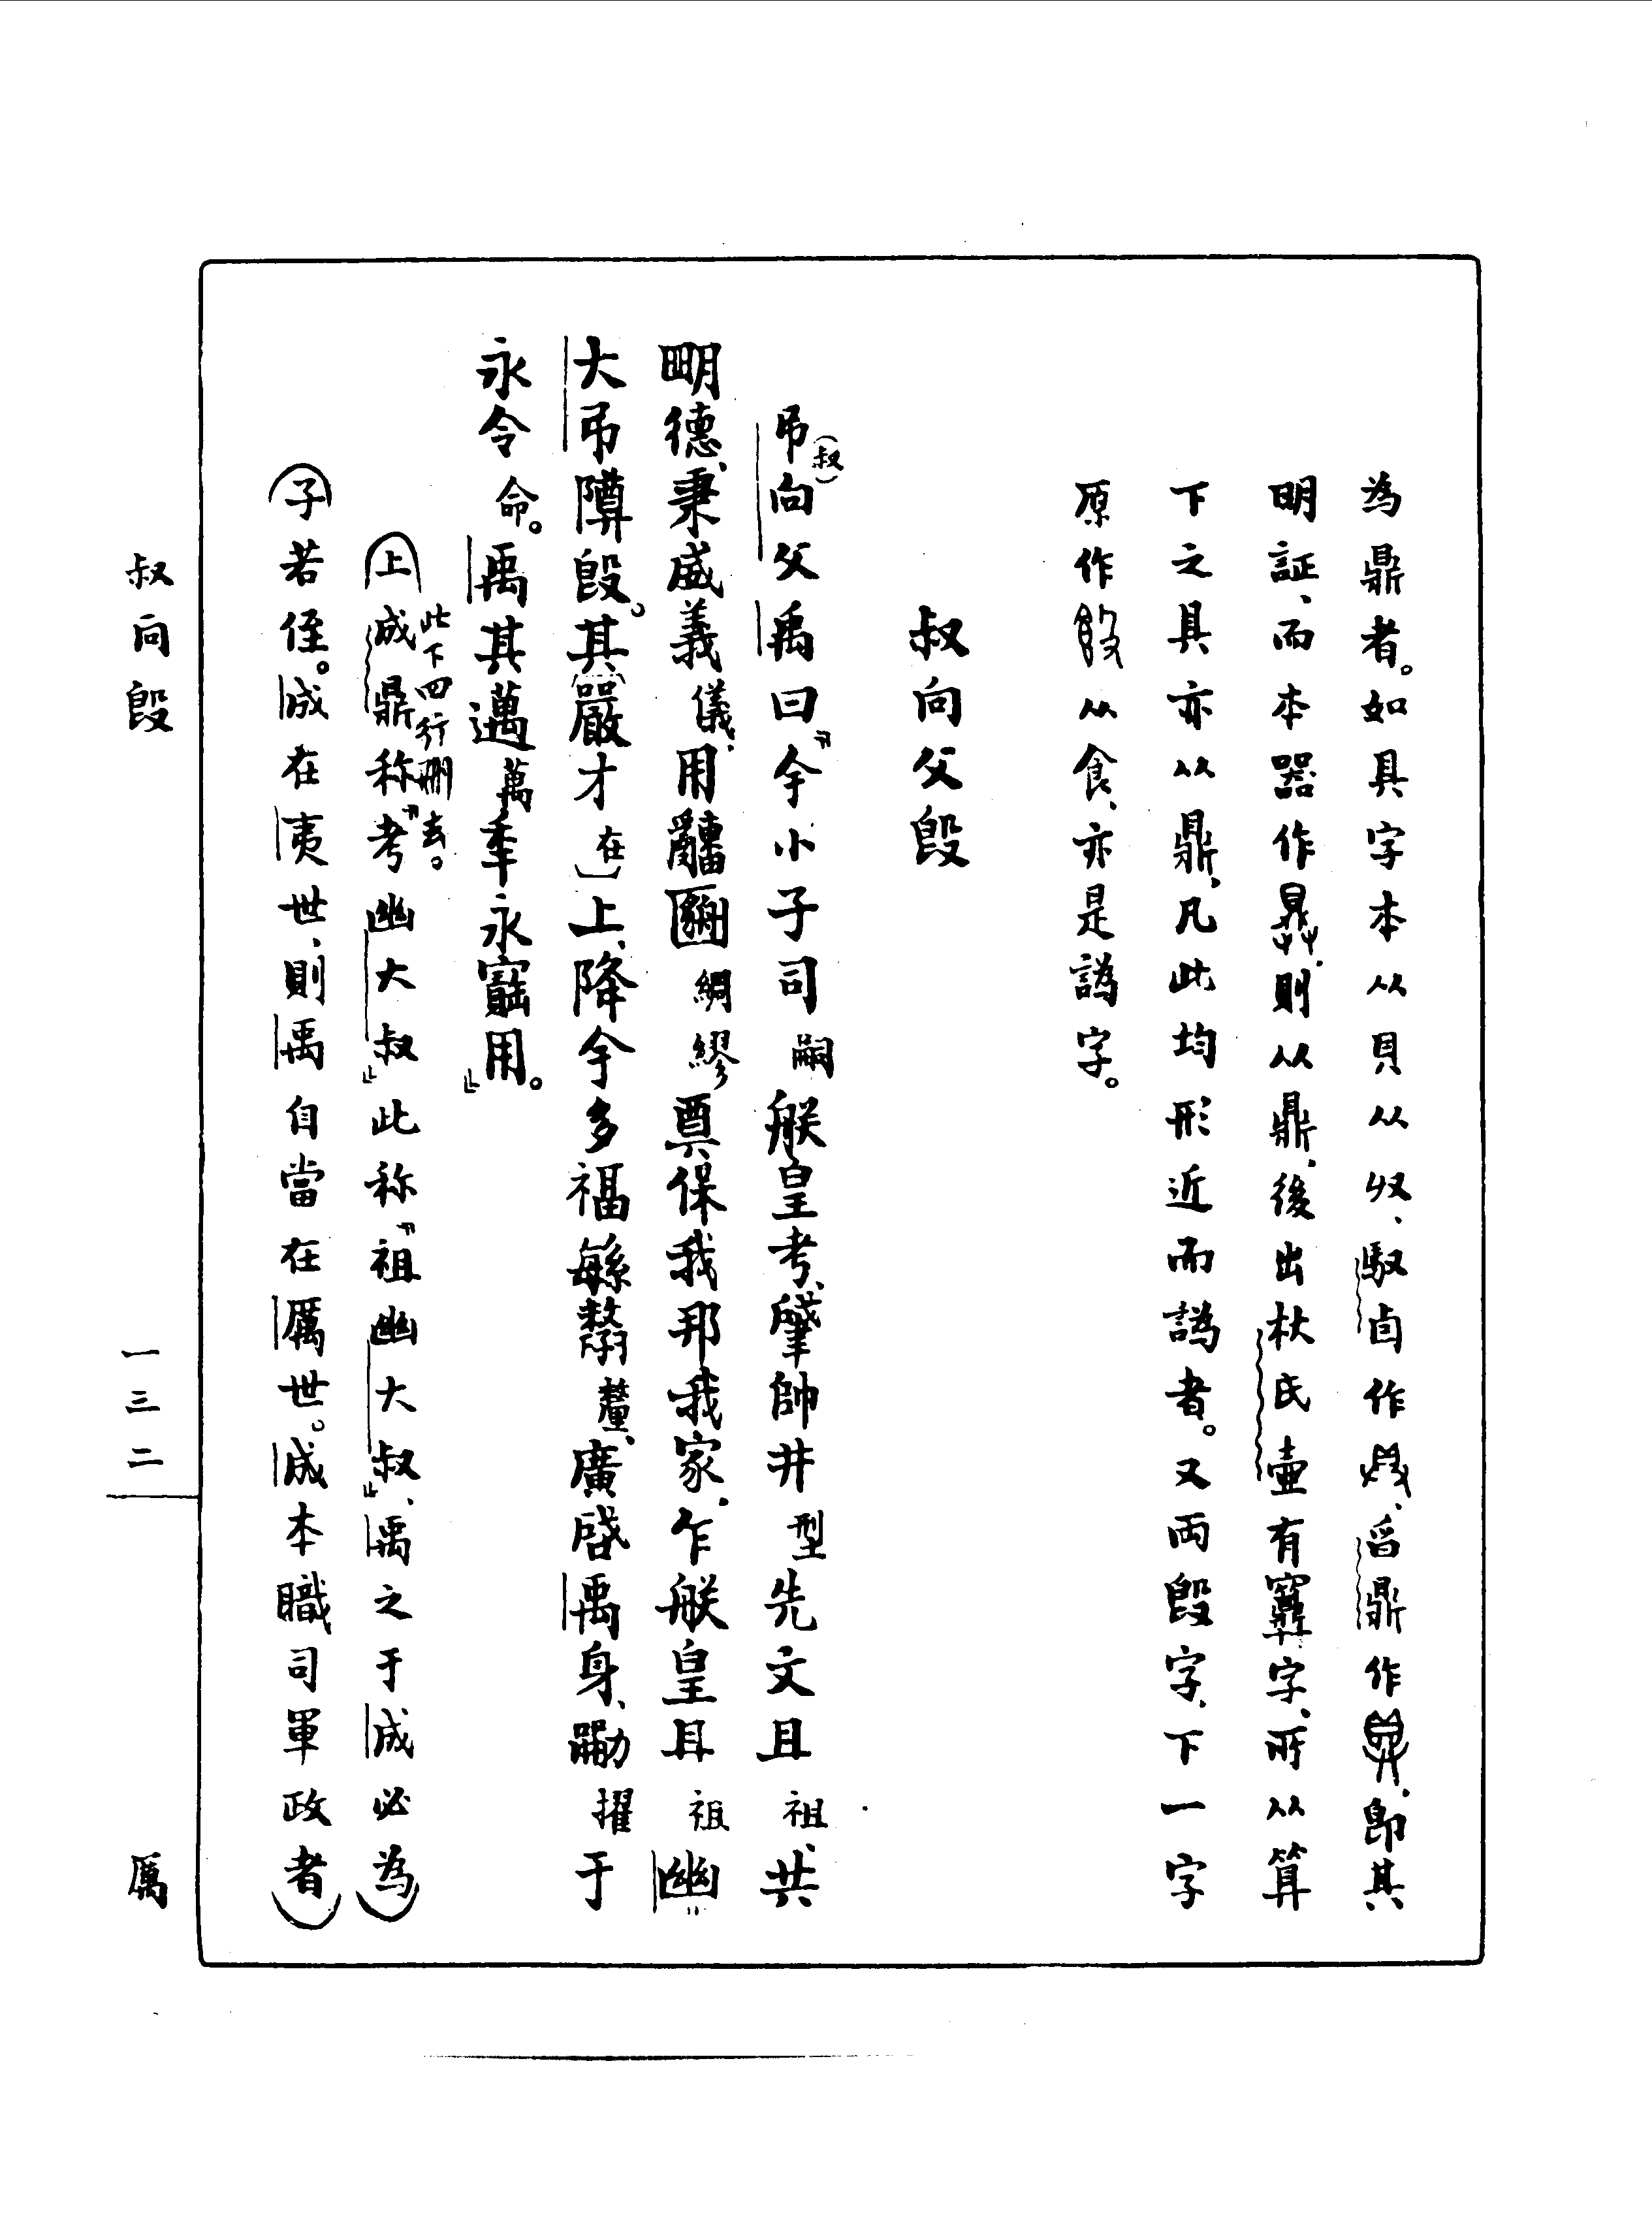 為鼎者。如具字本从貝从𠬞、馭卣作、舀鼎作、即其
明証、而本器作、則从鼎、後出杕氏壺有字、所从算
下之具亦从鼎、凡此均形近而譌者。又兩𣪘字、下一字
原作从食、亦是譌字。
叔向父𣪘
弔(叔)向父禹曰『余小子司嗣朕皇考、肇帥井型先文且祖、共
明德、秉威義儀、用綢繆奠保我邦我家、乍朕皇且祖幽
大弔𨻰𣪘。其嚴才在上、降余多福緐釐、廣啓禹身、擢于
永令命。禹其邁萬年永寶用。』
此下四行刪去。
(上成鼎称『考幽大叔』此称『祖幽大叔』、禹之于成必為)
(子若侄。成在夷世、則禹自當在厲世。成本職司軍政者)
叔向𣪘
一三二
厲